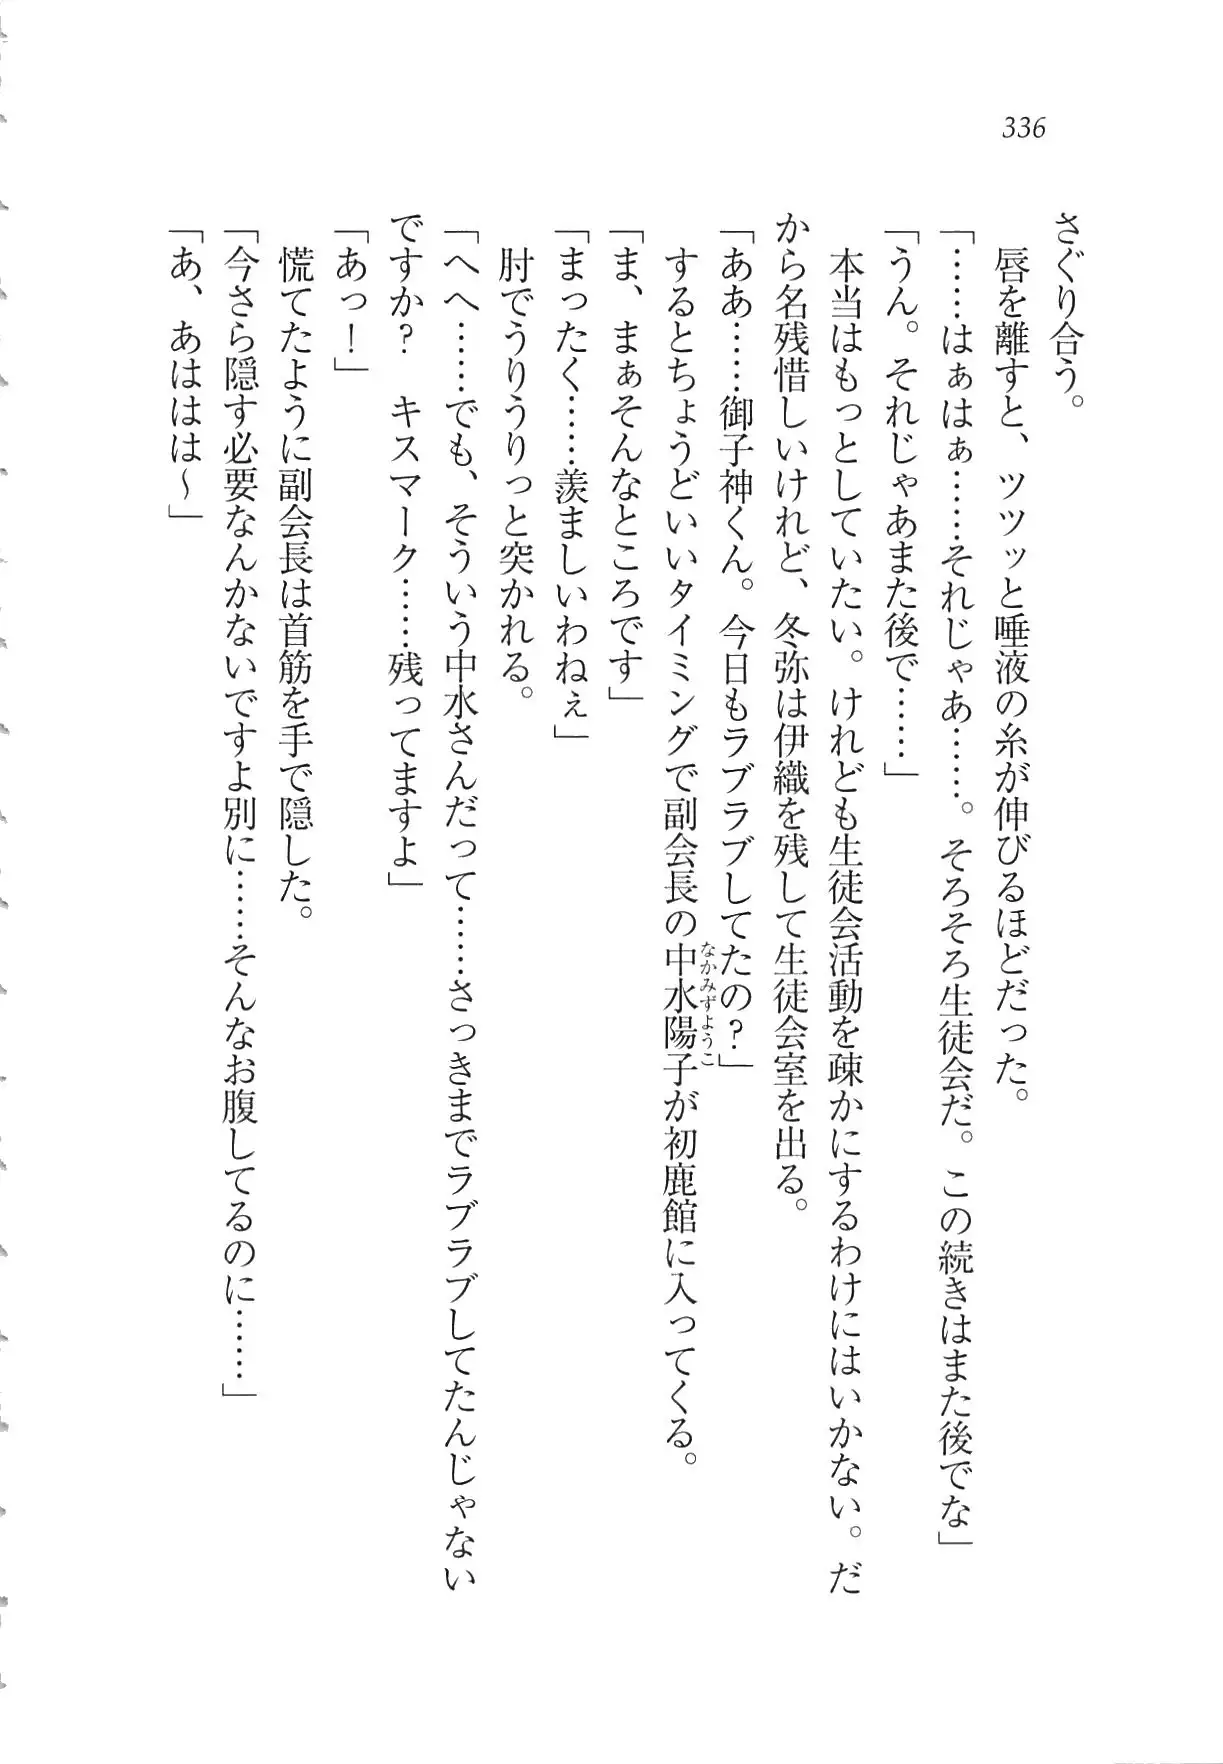 336
さぐり合う。
　唇を離すと、ツツッと唾液の糸が伸びるほどだった。
「……はぁはぁ……それじゃあ……。そろそろ生徒会だ。この続きはまた後でな」
「うん。それじゃあまた後で……」
　本当はもっとしていたい。けれども生徒会活動を疎かにするわけにはいかない。だ
から名残惜しいけれど、冬弥は伊織を残して生徒会室を出る。
「ああ……御子神くん。今日もラブラブしてたの？」
　するとちょうどいいタイミングで副会長の中水陽子が初鹿館に入ってくる。
なかみずようこ
「ま、まぁそんなところです」
「まったく……羨ましいわねぇ」
　肘でうりうりっと突かれる。
「へへ……でも、そういう中水さんだって……さっきまでラブラブしてたんじゃない
ですか？　キスマーク……残ってますよ」
「あっ！」
　慌てたように副会長は首筋を手で隠した。
「今さら隠す必要なんかないですよ別に……そんなお腹してるのに……」
「あ、あははは～」